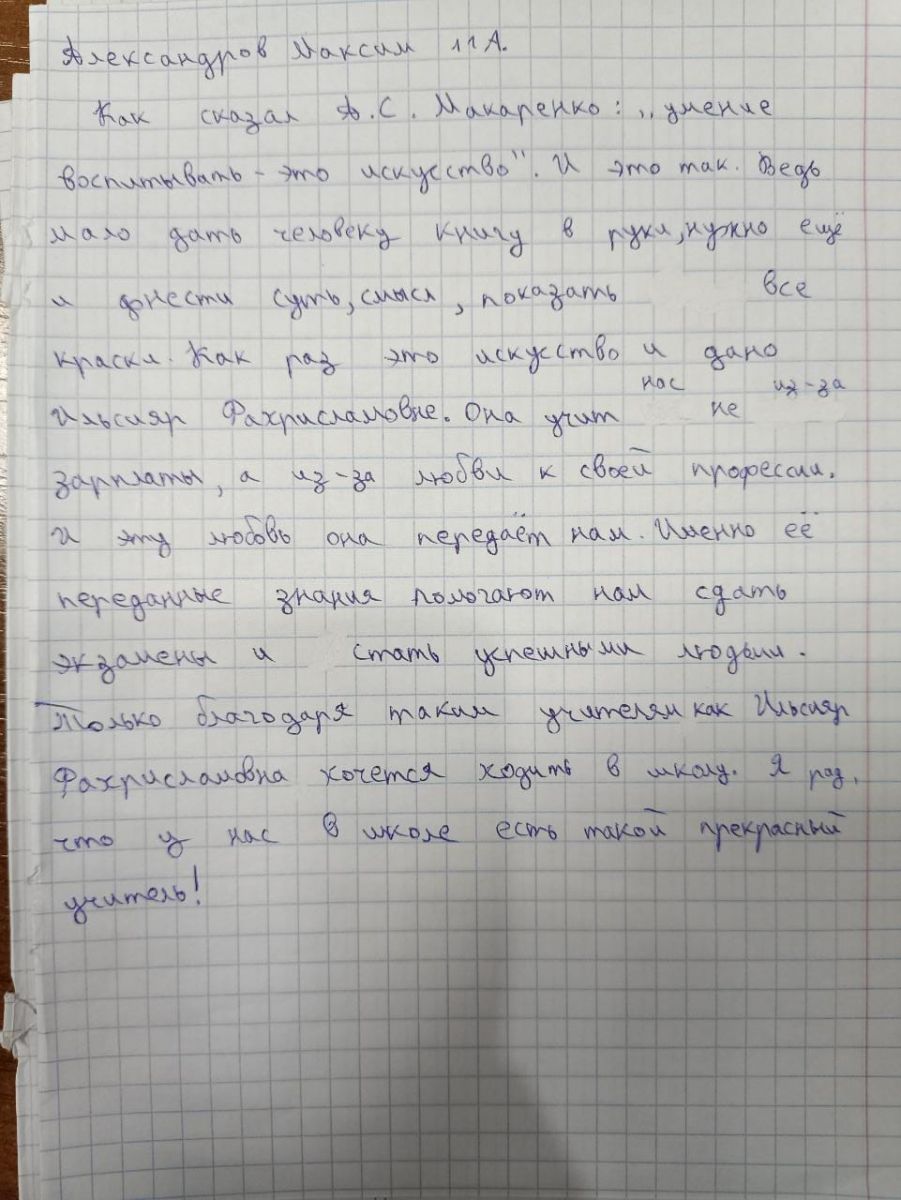 Александров Максим 11 А.
Как сказал А.С. Макаренко: „умение
воспитывать - это искусство". И это так. Ведь
мало дать человеку книгу в руки, нужно ещё
и донести суть, смысл, показать все
краски. Как раз это искусство и дано
нас из-за
Ильсияр Фахрисламовне. Она учит не
зарплаты, а из-за любви к своей профессии.
И эту любовь она передаёт нам. Именно её
переданные знания помогают нам сдать
экзамены и стать успешными людьми.
Только благодаря таким учителям как Ильсияр
Фахрисламовна хочется ходить в школу. Я рад,
что у нас в школе есть такой прекрасный
учитель!